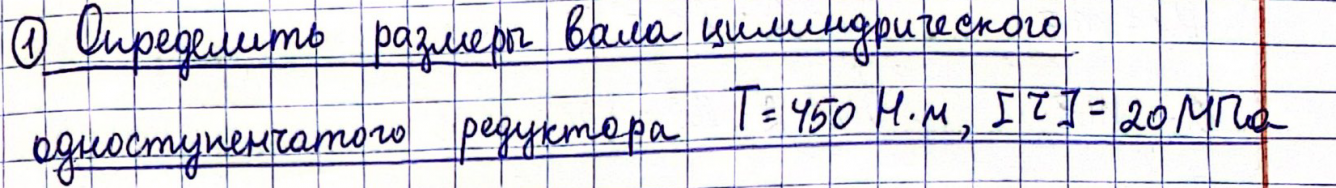 ① Определить размеры вала цилиндрического
одноступенчатого редуктора T = 450 Н·м, [τ] = 20 МПа